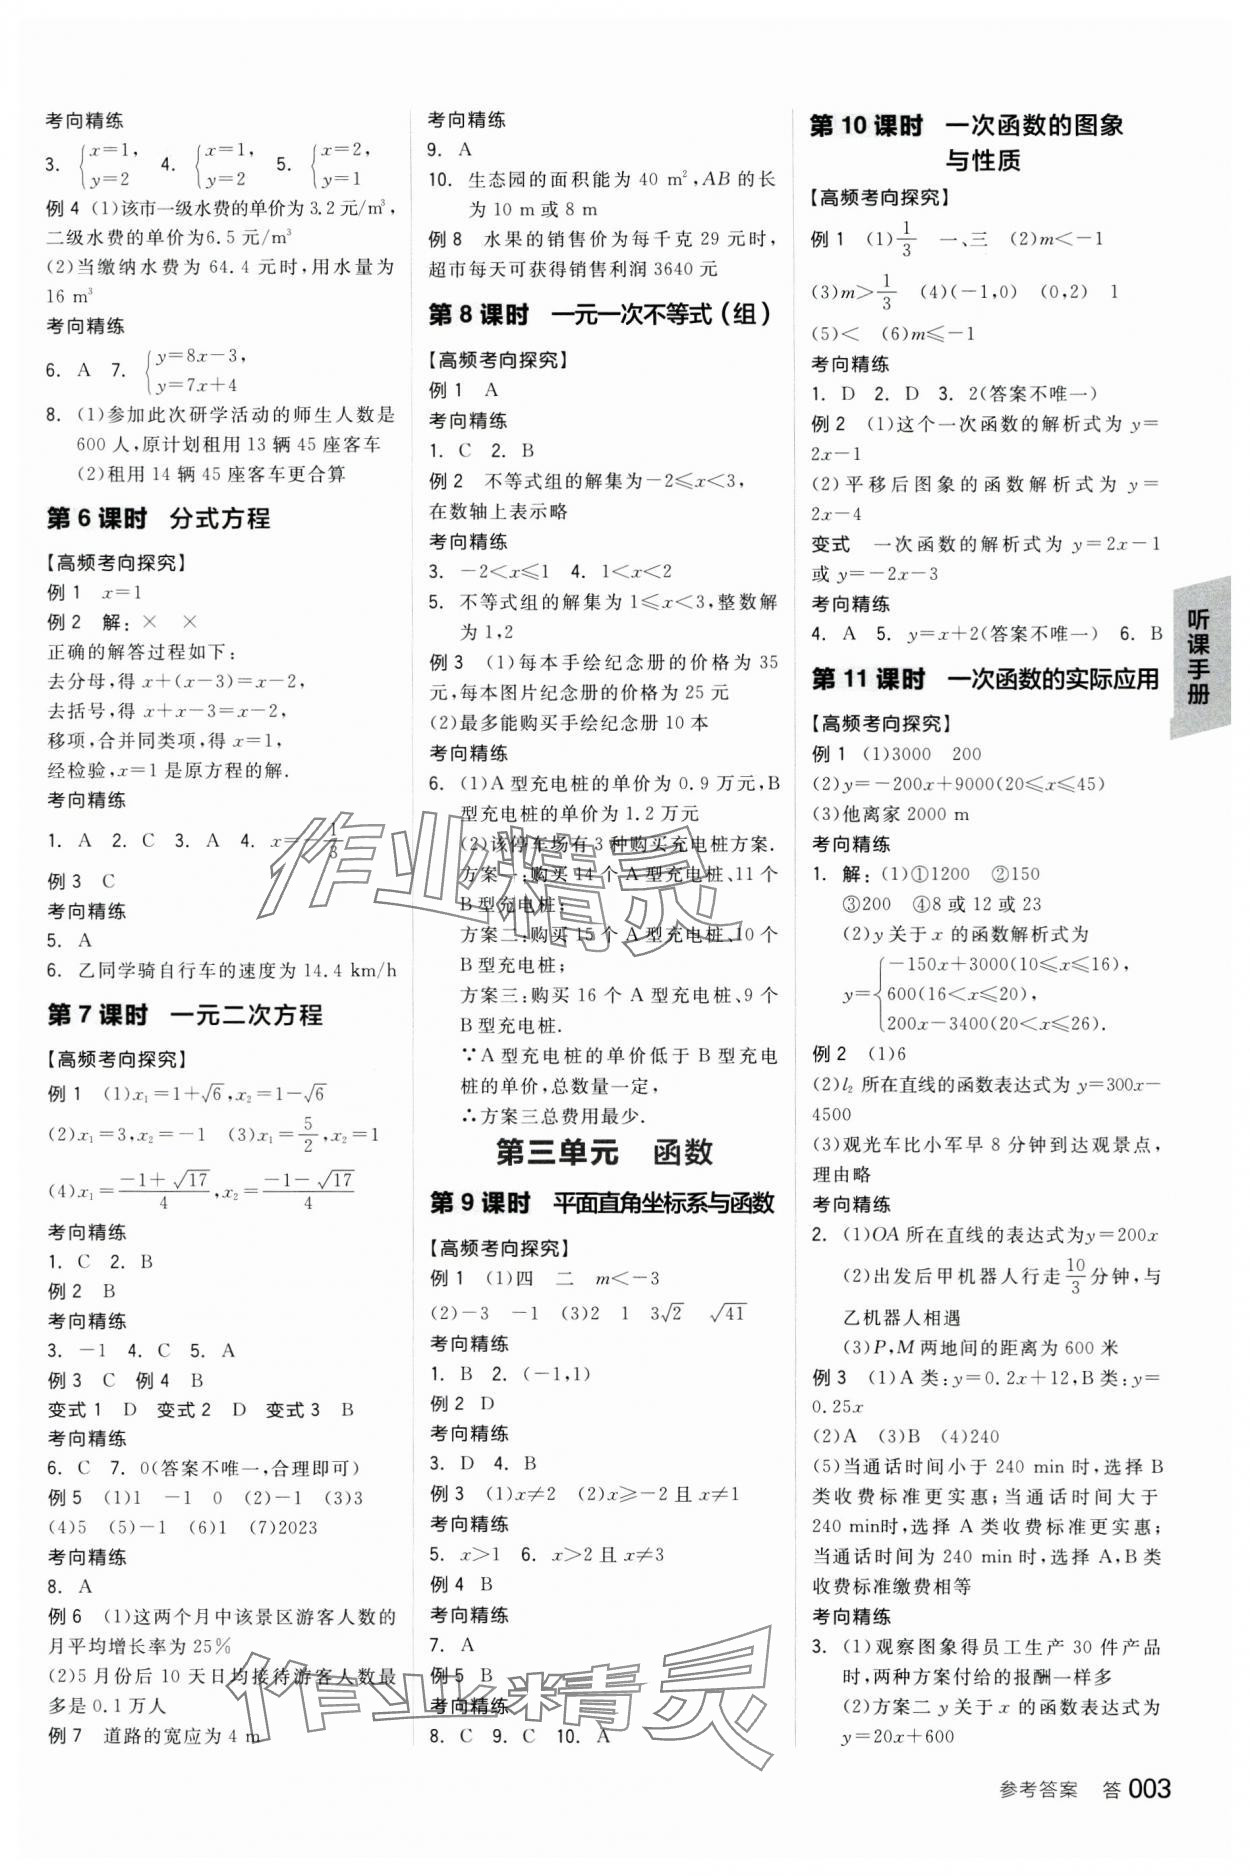 考向精练
3. {x=1, y=2  4. {x=1, y=2  5. {x=2, y=1
例 4 (1)该市一级水费的单价为3.2 元/m³,
二级水费的单价为6.5 元/m³
(2)当缴纳水费为 64.4 元时,用水量为
16 m³
考向精练
6. A  7. {y=8x-3, y=7x+4
8. (1)参加此次研学活动的师生人数是
600 人,原计划租用 13 辆 45 座客车
(2)租用 14 辆 45 座客车更合算
第 6 课时 分式方程
【高频考向探究】
例 1 x=1
例 2 解: × ×
正确的解答过程如下:
去分母,得 x+(x-3)=x-2,
去括号,得 x+x-3=x-2,
移项,合并同类项,得 x=1.
经检验,x=1 是原方程的解.
考向精练
1. A 2. C 3. A 4. x=
例 3 C
考向精练
5. A
6. 乙同学骑自行车的速度为 14.4 km/h
第 7 课时 一元二次方程
【高频考向探究】
例 1 (1)x₁=1+√6,x₂=1-√6
(2)x₁=3,x₂=-1 (3)x₁=5/2,x₂=1
(4)x₁=(-1+√17)/4,x₂=(-1-√17)/4
考向精练
1. C 2. B
例 2 B
考向精练
3. -1 4. C 5. A
例 3 C 例 4 B
变式 1 D 变式 2 D 变式 3 B
考向精练
6. C 7. 0(答案不唯一,合理即可)
例 5 (1)1 -1 0 (2)-1 (3)3
(4)5 (5)-1 (6)1 (7)2023
考向精练
8. A
例 6 (1)这两个月中该景区游客人数的
月平均增长率为 25%
(2)5 月份后 10 天日均接待游客人数最
多是 0.1 万人
例 7 道路的宽应为 4 m
考向精练
9. A
10. 生态园的面积能为 40 m²,AB 的长
为 10 m 或 8 m
例 8 水果的销售价为每千克 29 元时,
超市每天可获得销售利润 3640 元
第 8 课时 一元一次不等式(组)
【高频考向探究】
例 1 A
考向精练
1. C 2. B
例 2 不等式组的解集为-2≤x<3,
在数轴上表示略
考向精练
3. -2<x≤1 4. 1<x<2
5. 不等式组的解集为 1≤x<3,整数解
为 1,2
例 3 (1)每本手绘纪念册的价格为 35
元,每本图片纪念册的价格为 25 元
(2)最多能购买手绘纪念册 10 本
考向精练
6. (1)A 型充电桩的单价为 0.9 万元,B
型充电桩的单价为 1.2 万元
(2)该停车场有 3 种购买充电桩方案.
方案一:购买 14 个 A 型充电桩、11 个
B 型充电桩;
方案二:购买 15 个 A 型充电桩、10 个
B 型充电桩;
方案三:购买 16 个 A 型充电桩、9 个
B 型充电桩.
∵A 型充电桩的单价低于 B 型充电
桩的单价,总数量一定,
∴方案三总费用最少.
第三单元 函数
第 9 课时 平面直角坐标系与函数
【高频考向探究】
例 1 (1)四 二 m<-3
(2)-3 -1 (3)2 1 3√2 √41
考向精练
1. B 2. (-1,1)
例 2 D
考向精练
3. D 4. B
例 3 (1)x≠2 (2)x≥-2 且 x≠1
考向精练
5. x>1 6. x>2 且 x≠3
例 4 B
考向精练
7. A
例 5 B
考向精练
8. C 9. C 10. A
第 10 课时 一次函数的图象
与性质
【高频考向探究】
例 1 (1)1/3 一、三 (2)m<-1
(3)m>1/3 (4)(-1,0) (0,2) 1
(5)< (6)m≤-1
考向精练
1. D 2. D 3. 2(答案不唯一)
例 2 (1)这个一次函数的解析式为 y=
2x-1
(2)平移后图象的函数解析式为 y=
2x-4
变式 一次函数的解析式为 y=2x-1
或 y=-2x-3
考向精练
4. A 5. y=x+2(答案不唯一) 6. B
第 11 课时 一次函数的实际应用
【高频考向探究】
例 1 (1)3000 200
(2)y=-200x+9000(20≤x≤45)
(3)他离家 2000 m
考向精练
1. 解:(1)①1200 ②150
③200 ④8 或 12 或 23
(2)y 关于 x 的函数解析式为
y={-150x+3000(10≤x≤16),
600(16<x≤20),
200x-3400(20<x≤26).
例 2 (1)6
(2)l₂ 所在直线的函数表达式为 y=300x-
4500
(3)观光车比小军早 8 分钟到达观景点,
理由略
考向精练
2. (1)OA 所在直线的表达式为y=200x
(2)出发后甲机器人行走10/3分钟,与
乙机器人相遇
(3)P,M 两地间的距离为 600 米
例 3 (1)A 类:y=0.2x+12,B 类:y=
0.25x
(2)A (3)B (4)240
(5)当通话时间小于 240 min 时,选择 B
类收费标准更实惠;当通话时间大于
240 min时,选择 A 类收费标准更实惠;
当通话时间为 240 min 时,选择 A,B 类
收费标准缴费相等
考向精练
3. (1)观察图象得员工生产 30 件产品
时,两种方案付给的报酬一样多
(2)方案二 y 关于 x 的函数表达式为
y=20x+600
听课手册
参考答案 答 003
作业精灵
作业精灵